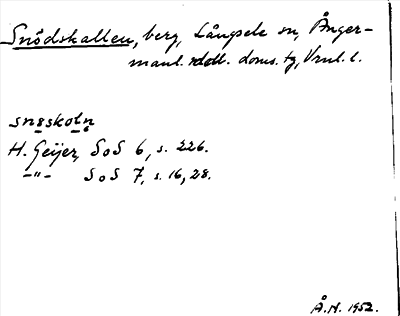 Snödskallen, berg, Långsele sn, Ånger-
manl. södll. doms. tg, Vnl. l.
snøskoln
H. Geijer, SoS 6, s. 226.
-"- SoS 7, s. 16, 28.
Å.N. 1952.